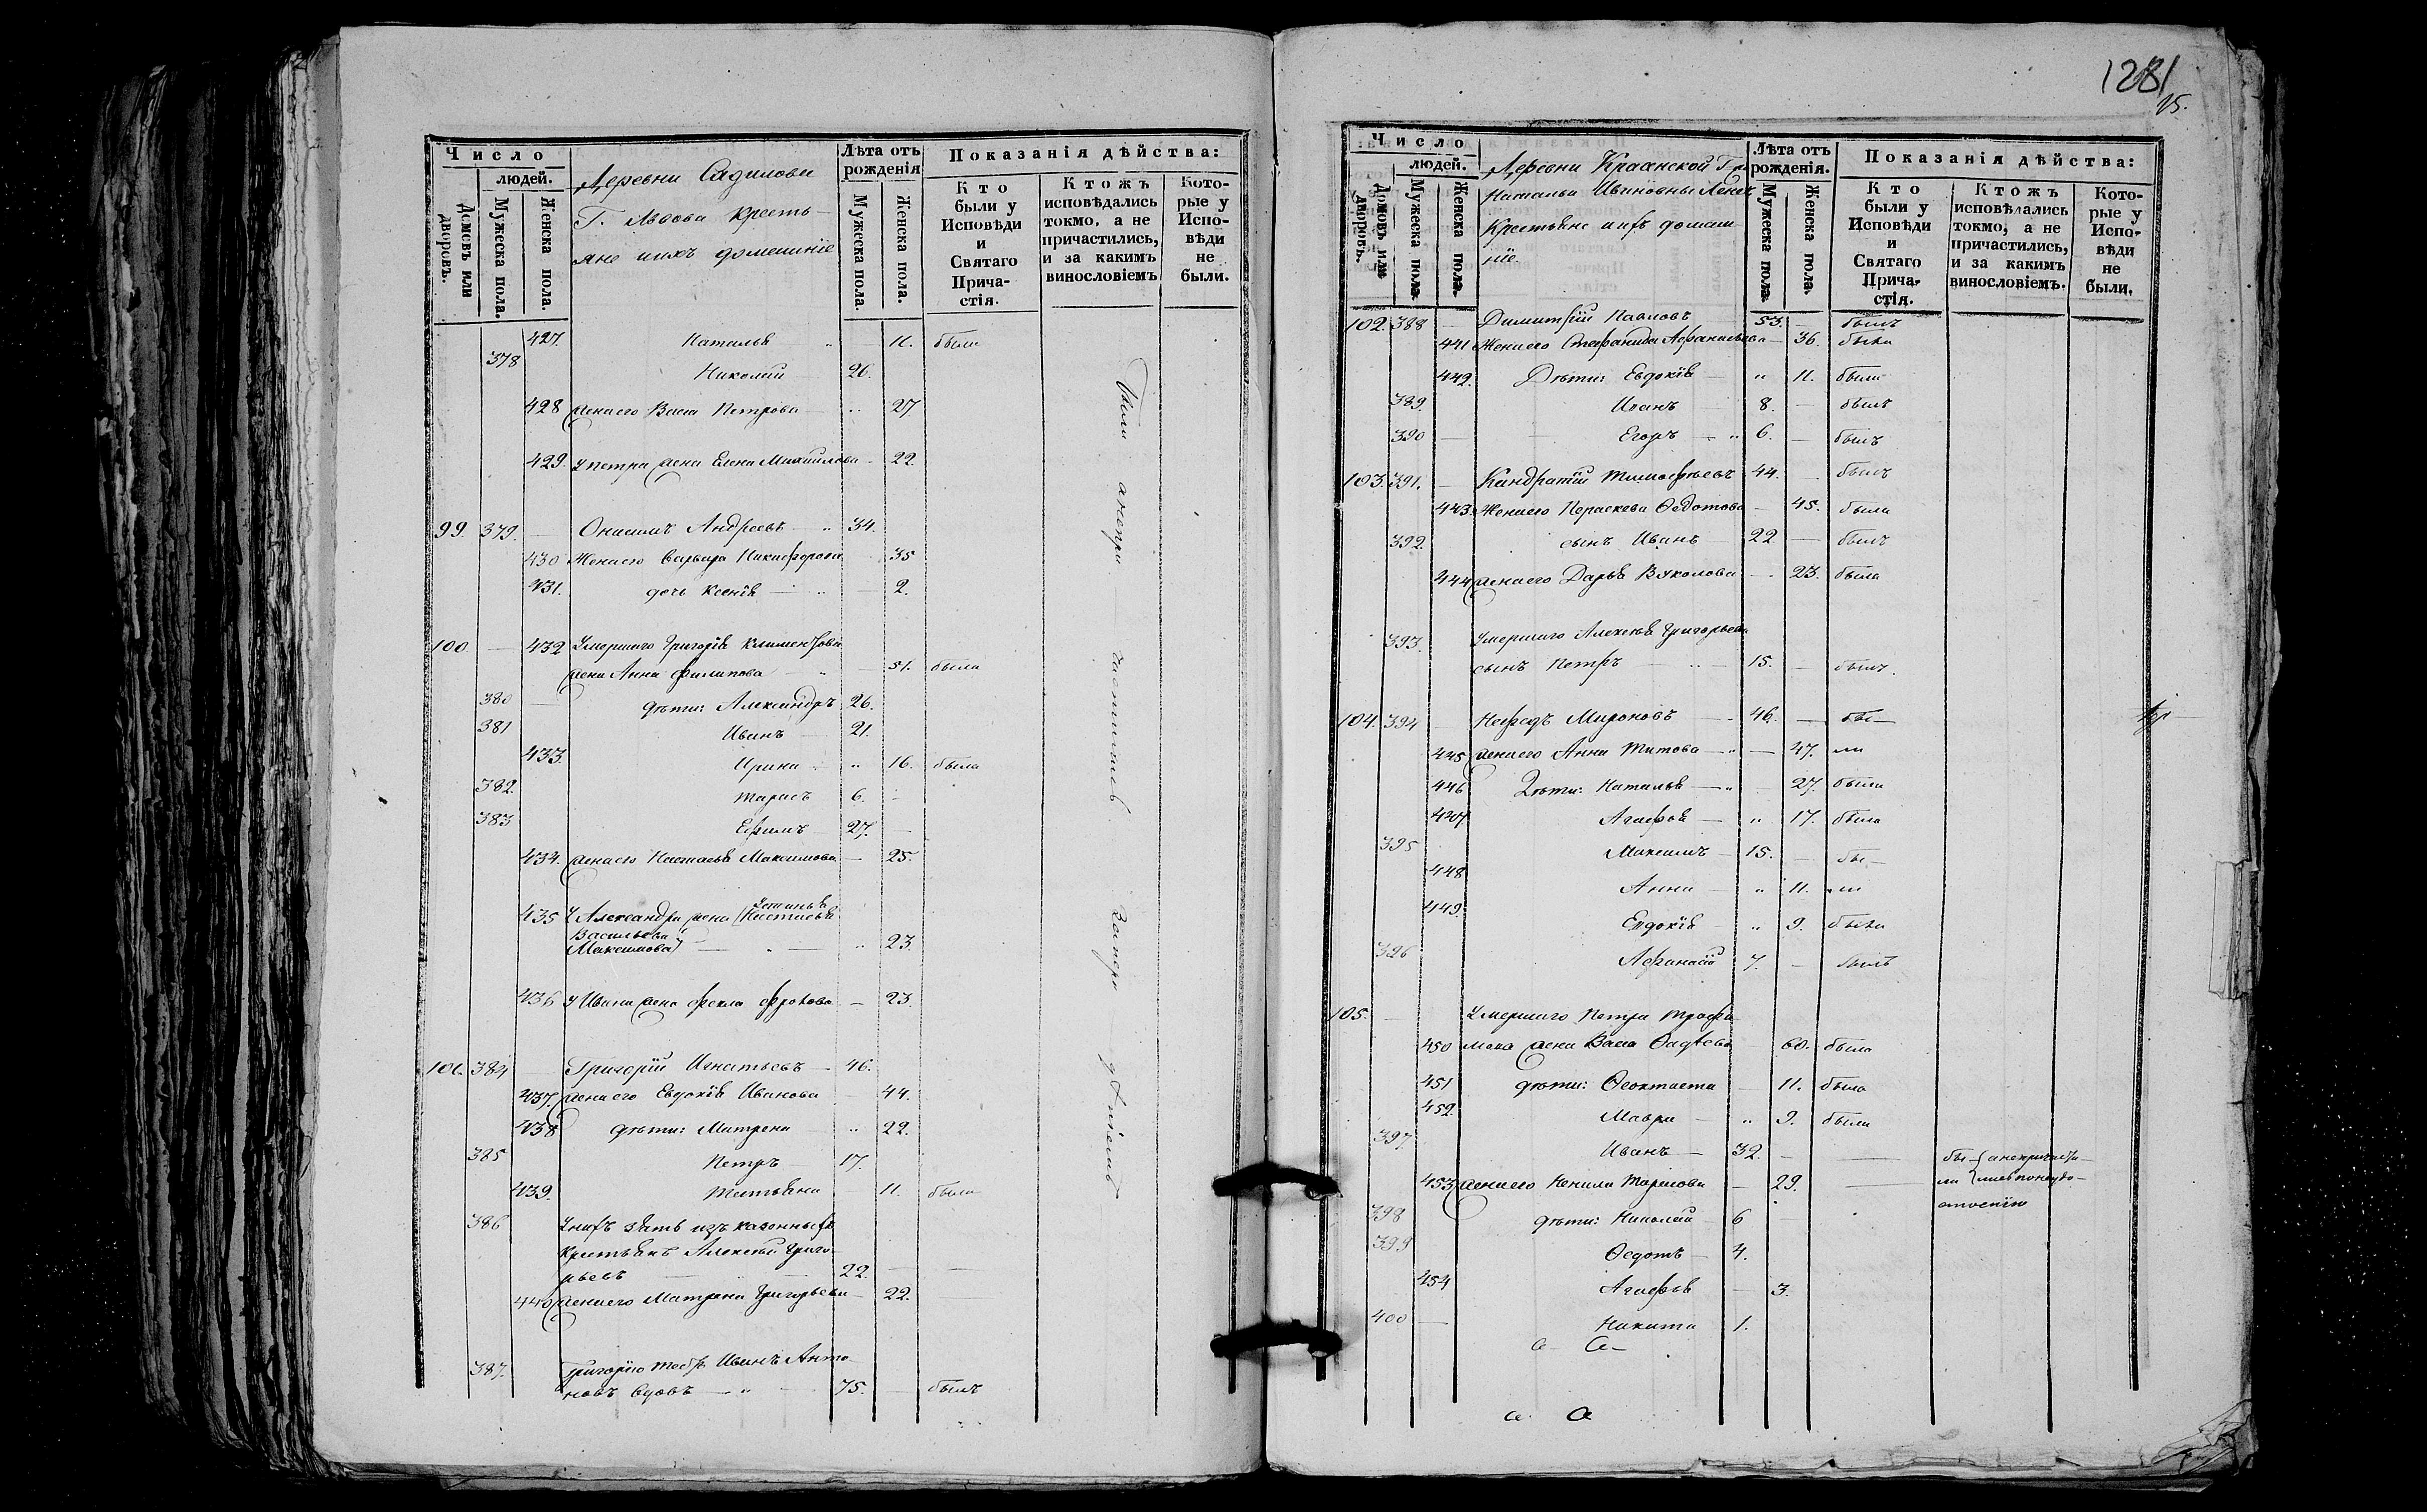 Число
людей.
Домовъ или дворовъ.
Мужеска пола.
Женска пола.
Деревни Садилова
Г. Львова кресть-
яне и ихъ домашніе
Лѣта отъ рожденія
Мужеска пола.
Женска пола.
Показанія дѣйства:
Кто были у Исповѣди и Святаго Прича-стія.
Ктожъ исповѣдались токмо, а не причастились, и за какимъ винословіемъ
Кото-рые у Испо-вѣди не были.
427. Наталья 11. была
378 Николай 26.
428 жена его Васса Петрова 27
429. у Петра жена Елена Михайлова 22.
99. 379. Онисимъ Андреевъ 34.
430 Жена его Варвара Никифорова 35
431. дочь Ксенія 2.
100 432 Умершаго Григорія Климентова
жена Анна Филипова 51. была
380 дѣти: Александръ 26.
381 Иванъ 21.
433. Ирина 16. была
382. Тарасъ 6.
383 Ефимъ 27.
434. жена его Настасья Максимова 25.
435 У Александра жена (Настасья
Васильева
Максимова) 23.
436 у Ивана жена Фекла Фролова 23.
101. 384 Григорій Игнатьевъ 46.
437. жена его Евдокія Иванова 44.
438 дѣти: Матрена 22.
385 Петръ 17.
439. Татьяна 11. была
386 У нихъ зять изъ казенныхъ
крестьянъ Алексѣй Григо-
рьевъ 22.
440 жена его Матрена Григорьева 22.
387. Григорію тесть Иванъ Анто-
новъ вдовъ 75. былъ
были а непри частилсь
1281
15.
Число
людей.
Домовъ или дворовъ.
Мужеска пола.
Женска пола.
Деревни Г
Натальи Ивановны
Крестьяне и ихъ домаш-
ніе.
Лѣта отъ рожденія.
Мужеска пола.
Женска пола.
Показанія дѣйства:
Кто были у Исповѣди и Святаго Прича-стія.
Ктожъ исповѣдались токмо, а не причастились, и за какимъ винословіемъ.
Кото-рые у Испо-вѣди не были.
102. 388 Димитрій Павловъ 53. былъ
441 Жена его Стефанида Афанасьева 36. была
442. Дѣти: Евдокія 11. была
389. Иванъ 8. былъ
390 Егоръ 6. былъ
103. 391. Кандратій Тимофѣевъ 44. былъ
443. Жена его Параскева Ѳедотова 45. была
392 сынъ Иванъ 22 былъ
444 жена его Дарья Вуколова 23. была
393. Умершаго Алексѣя Григорьева
сынъ Петръ 15. былъ.
104. 394 Нефедъ Мироновъ 46. бы-
445 жена его Анна Титова 47. ли
446 Дѣти: Наталья 27. была
447 Агафья 17. была
395 Максимъ 15. бы-
448 Анна 11. ли
449. Евдокія 9. была
396 Афанасій 7. былъ
105. Умершаго Петра Трофи-
450 мова жена Васса Ѳадѣева 60. была
451 дѣти: Ѳеоктиста 11. была
452. Мавра 9. была
397. Иванъ 32. бы- { а непричасти-
453 жена его Ненила Тарасова 29. ли { лись по недо-
стоенію
398 дѣти: Николай 6
399 Ѳедотъ 4.
454 Агафья 3.
400 Никита 1.